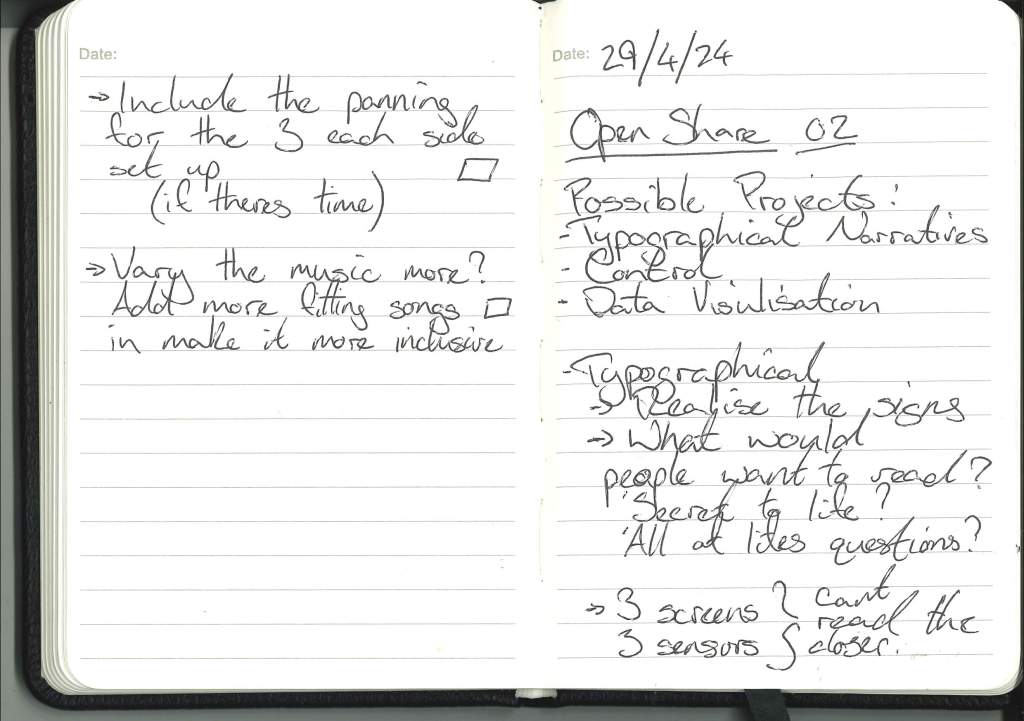 Date:
→ Include the panning
for the 3 each side
set up
(if theres time)
→ Vary the music more?
Add more fitting songs
in make it more inclusive
Date: 29/4/24
Open Share 02
Possible Projects:
- Typographical Narratives
- Control
- Data Visiulisation
- Typographical
→ Realise the signs
→ What would
people want to read?
'Secret to life?
'All of lifes questions?
→ 3 screens } cant
3 sensors } read the
closer.